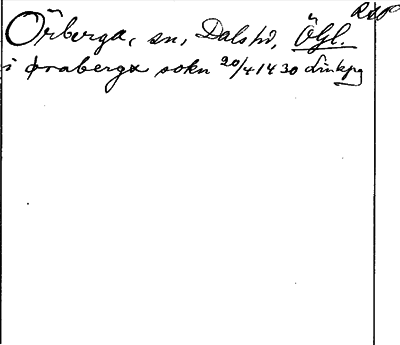 RAP
Örberga, sn, Dals hd, Ögl.
i ørabergx sokn 20/4 1430 Linkpg